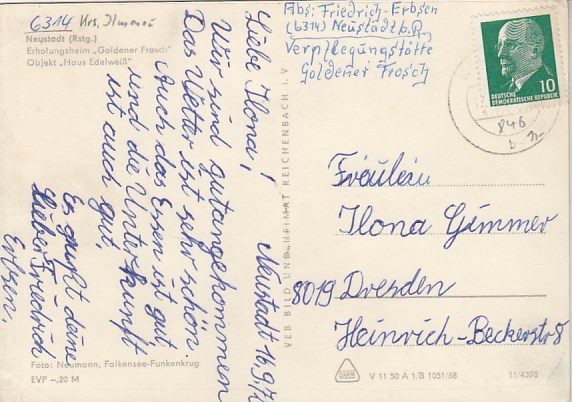 6314 Krs. Ilmenau
Neustadt (Rstg.)
Erholungsheim „Goldener Frosch"
Objekt „Haus Edelweiß"
Neustadt 16.9.7
Liebe Ilona!
Wir sind gutangekommen
Das Wetter ist sehr schön.
Auch das Essen ist gut
und die Unterkunft
ist auch gut.
Es grüßt deine
lieber Friedrich
Erbsen.
Foto: Neumann, Falkensee-Funkenkrug
EVP -,20 M
VEB BILD UND HEIMAT REICHENBACH i. V.
Abs: Friedrich-Erbsen
(6314) Neustadt b. R.
Verpflegungstätte
Goldener Frosch
10
DEUTSCHE
DEMOKRATISCHE REPUBLIK
846
Fräulein
Ilona Gimmer
8019 Dresden
Heinrich-Beckerstr 8
V 11 50 A 1/B 1051/68
11/4398